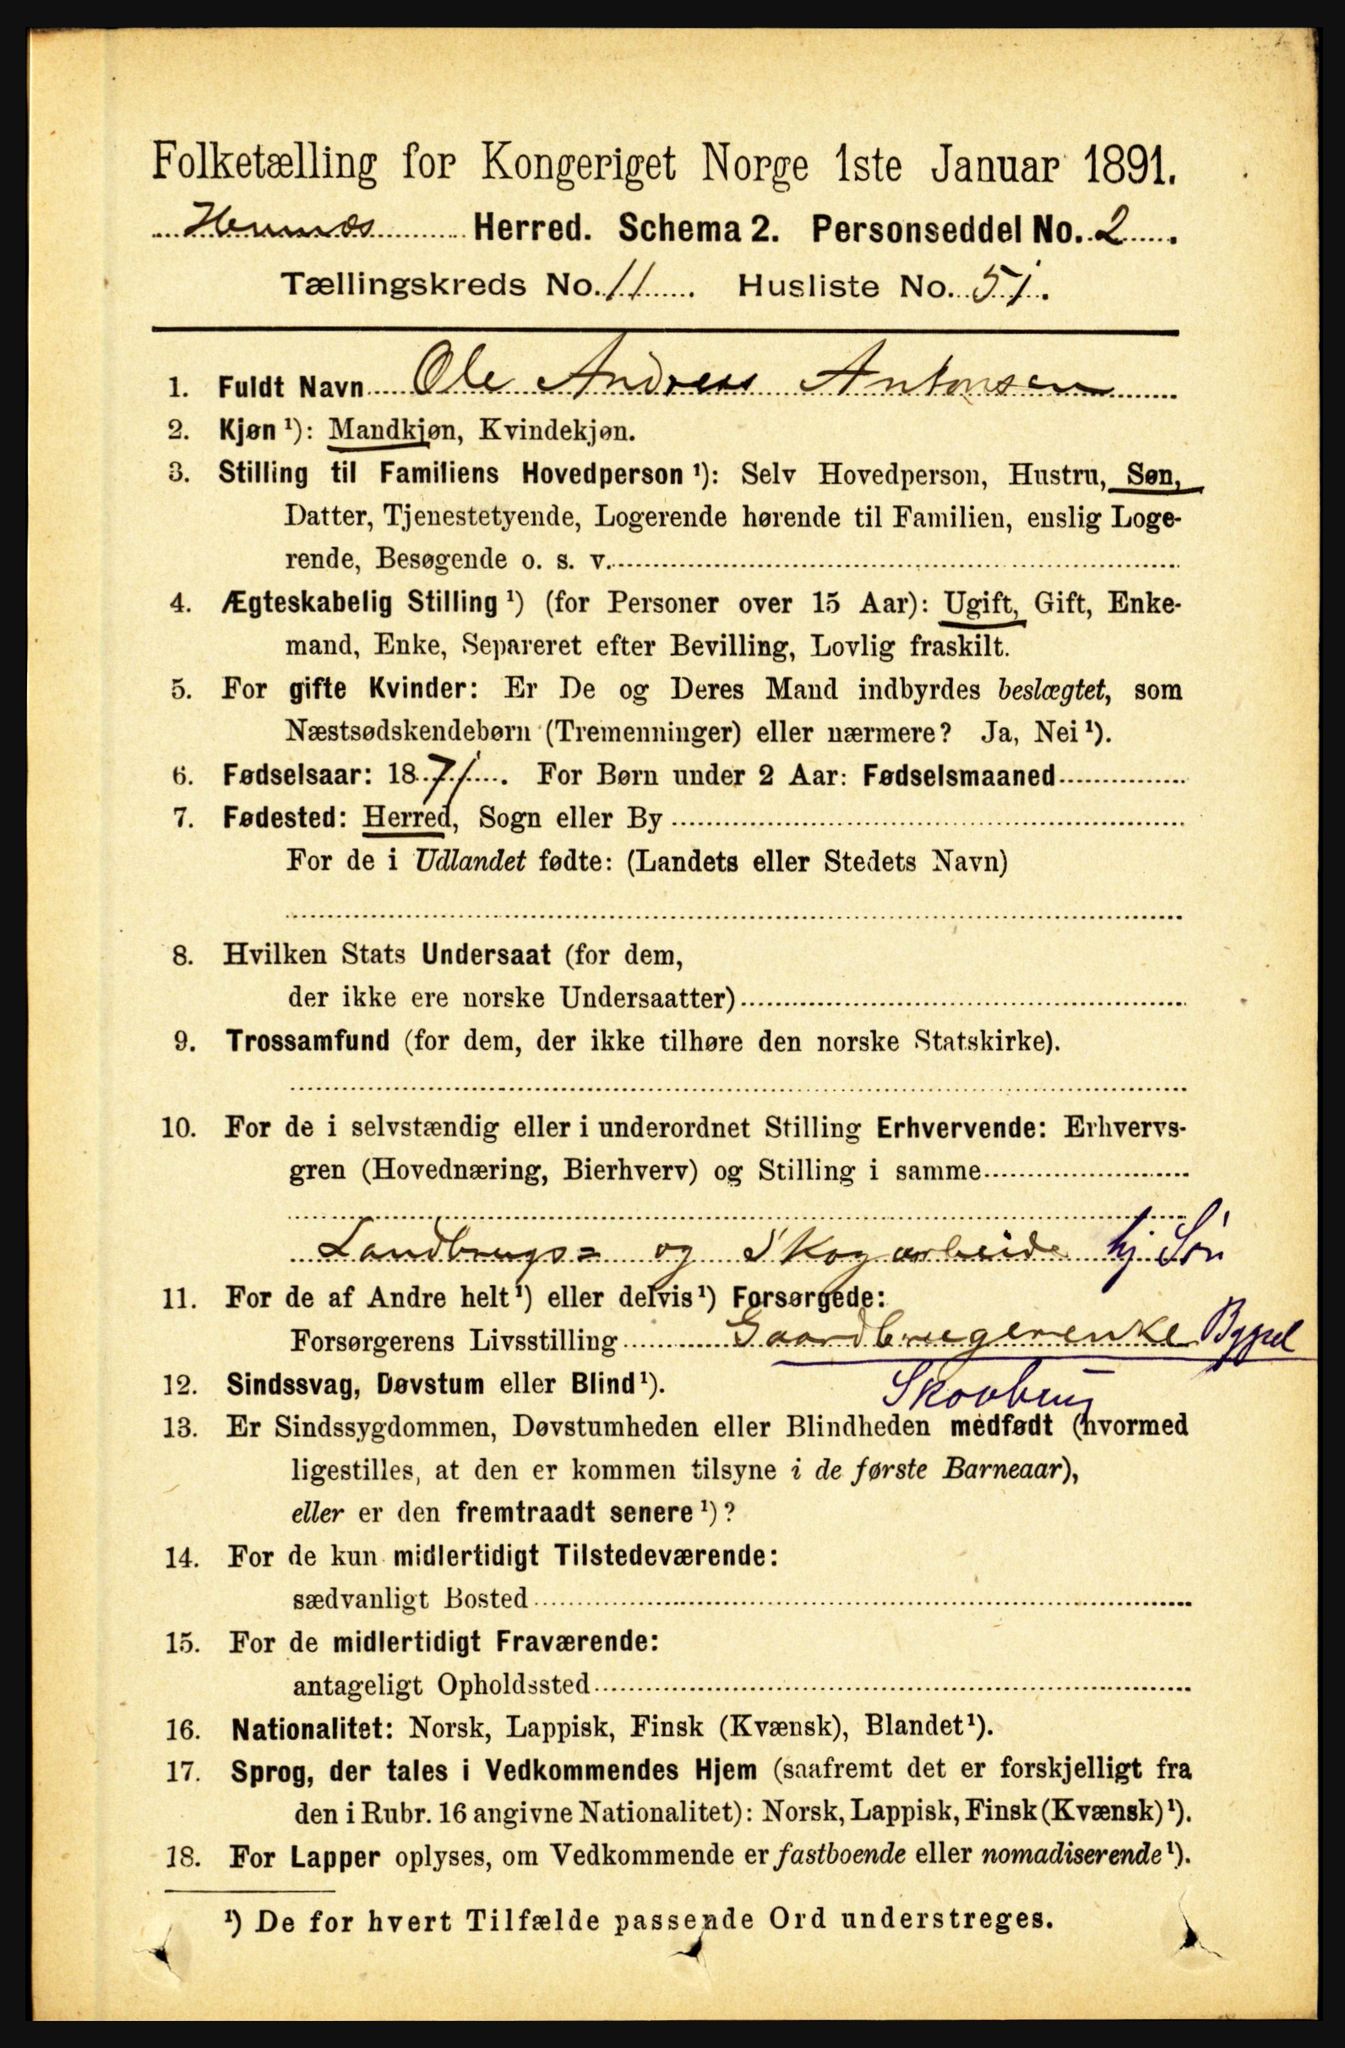 Folketælling for Kongeriget Norge 1ste Januar 1891.
Hemnæs Herred. Schema 2. Personseddel No. 2.
Tællingskreds No. 11. Husliste No. 51.
1. Fuldt Navn Ole Andreas Antonsen
2. Kjøn ¹): Mandkjøn, Kvindekjøn.
3. Stilling til Familiens Hovedperson ¹): Selv Hovedperson, Hustru, Søn,
Datter, Tjenestetyende, Logerende hørende til Familien, enslig Loge-
rende, Besøgende o. s. v.
4. Ægteskabelig Stilling ¹) (for Personer over 15 Aar): Ugift, Gift, Enke-
mand, Enke, Separeret efter Bevilling, Lovlig fraskilt.
5. For gifte Kvinder: Er De og Deres Mand indbyrdes beslægtet, som
Næstsødskendebørn (Tremenninger) eller nærmere? Ja, Nei ¹).
6. Fødselsaar: 1871. For Børn under 2 Aar: Fødselsmaaned
7. Fødested: Herred, Sogn eller By
For de i Udlandet fødte: (Landets eller Stedets Navn)
8. Hvilken Stats Undersaat (for dem,
der ikke ere norske Undersaatter)
9. Trossamfund (for dem, der ikke tilhøre den norske Statskirke).
10. For de i selvstændig eller i underordnet Stilling Erhvervende: Erhvervs-
gren (Hovednæring, Bierhverv) og Stilling i samme
Landbrugs= og Skogarbeide hj Søn
11. For de af Andre helt ¹) eller delvis ¹) Forsørgede:
Forsørgerens Livsstilling Gaardbrugerenke Bygsel
Skovbrug
12. Sindssvag, Døvstum eller Blind ¹).
13. Er Sindssygdommen, Døvstumheden eller Blindheden medfødt (hvormed
ligestilles, at den er kommen tilsyne i de første Barneaar),
eller er den fremtraadt senere ¹)?
14. For de kun midlertidigt Tilstedeværende:
sædvanligt Bosted
15. For de midlertidigt Fraværende:
antageligt Opholdssted
16. Nationalitet: Norsk, Lappisk, Finsk (Kvænsk), Blandet ¹).
17. Sprog, der tales i Vedkommendes Hjem (saafremt det er forskjelligt fra
den i Rubr. 16 angivne Nationalitet): Norsk, Lappisk, Finsk (Kvænsk) ¹).
18. For Lapper oplyses, om Vedkommende er fastboende eller nomadiserende ¹).
¹) De for hvert Tilfælde passende Ord understreges.